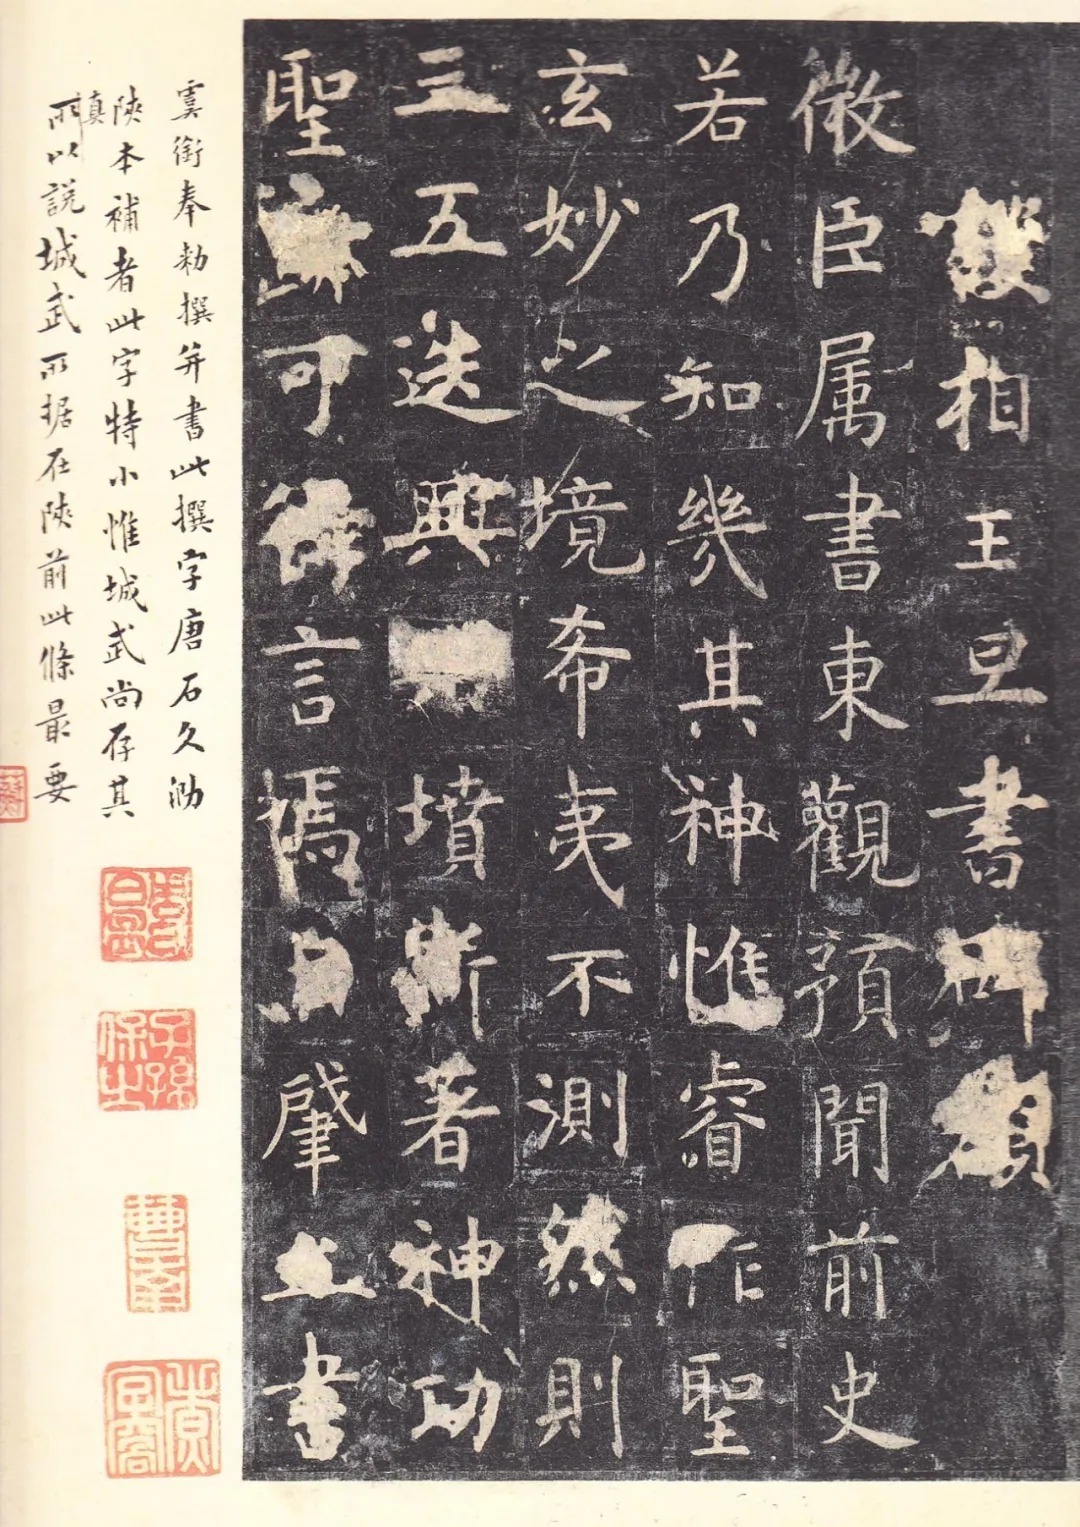 護相王旦書碑額
微臣属書東觀預聞前史
若乃知幾其神惟睿作聖
玄妙之境希夷不測然則
三五迭興墳斯著神功
聖迹可得言焉自肈立書
虞銜奉勑撰并書此撰字唐石久泐
陝本補者此字特小惟城武尚存其真
所以說城武所据在陝前此條最要
子孫保之